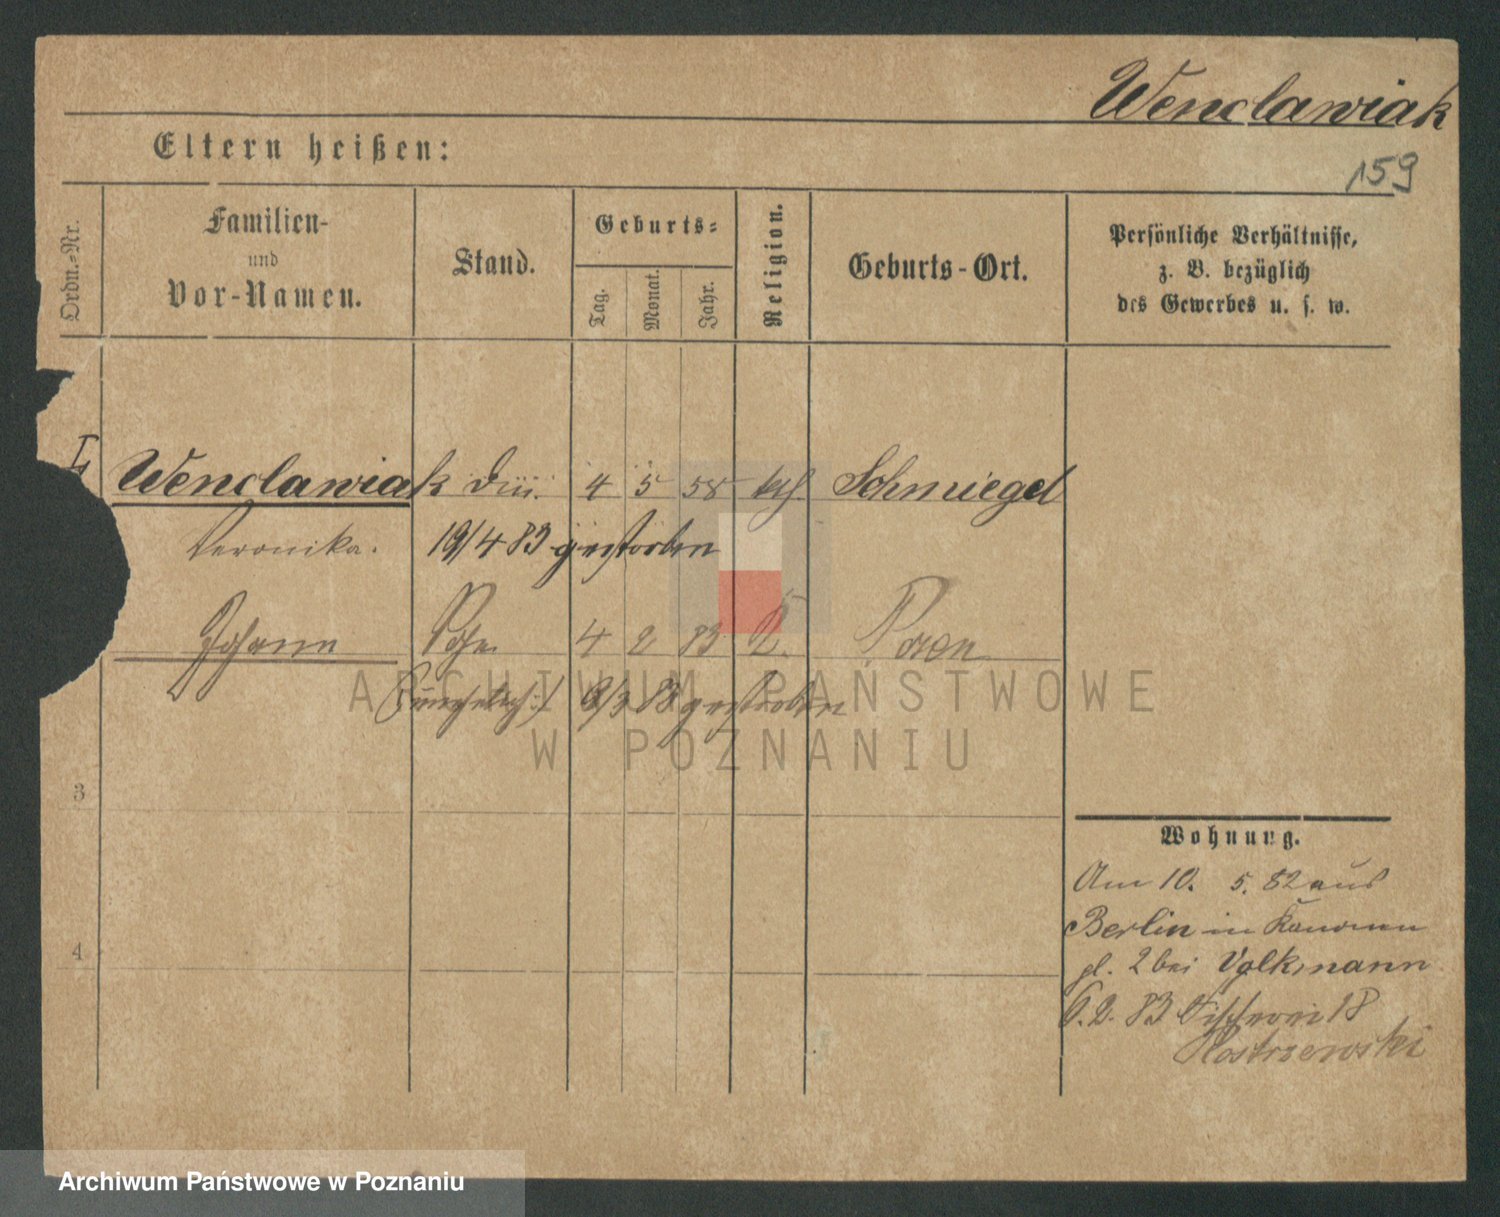 Wenclawiak
159
Eltern heißen:
Ordn.-Nr.
Familien-
und
Vor-Namen.
Stand.
Geburts-
Tag.
Monat.
Jahr.
Religion.
Geburts-Ort.
Persönliche Verhältnisse,
z. B. bezüglich
des Gewerbes u. s. w.
Wenclawiak 4 5 58 kth Schmiegel
Veronika. 19/4 83 gestorben
Johann 4 2 83 Posen
83 gestorben
ARCHIWUM PAŃSTWOWE
W POZNANIU
3
4
Wohnung.
Am 10. 5. 82 aus
Berlin in Kanonen
pl. 2 bei Volkmann
6. 2. 83 Fischerei 18
Kostrzewski
Archiwum Państwowe w Poznaniu